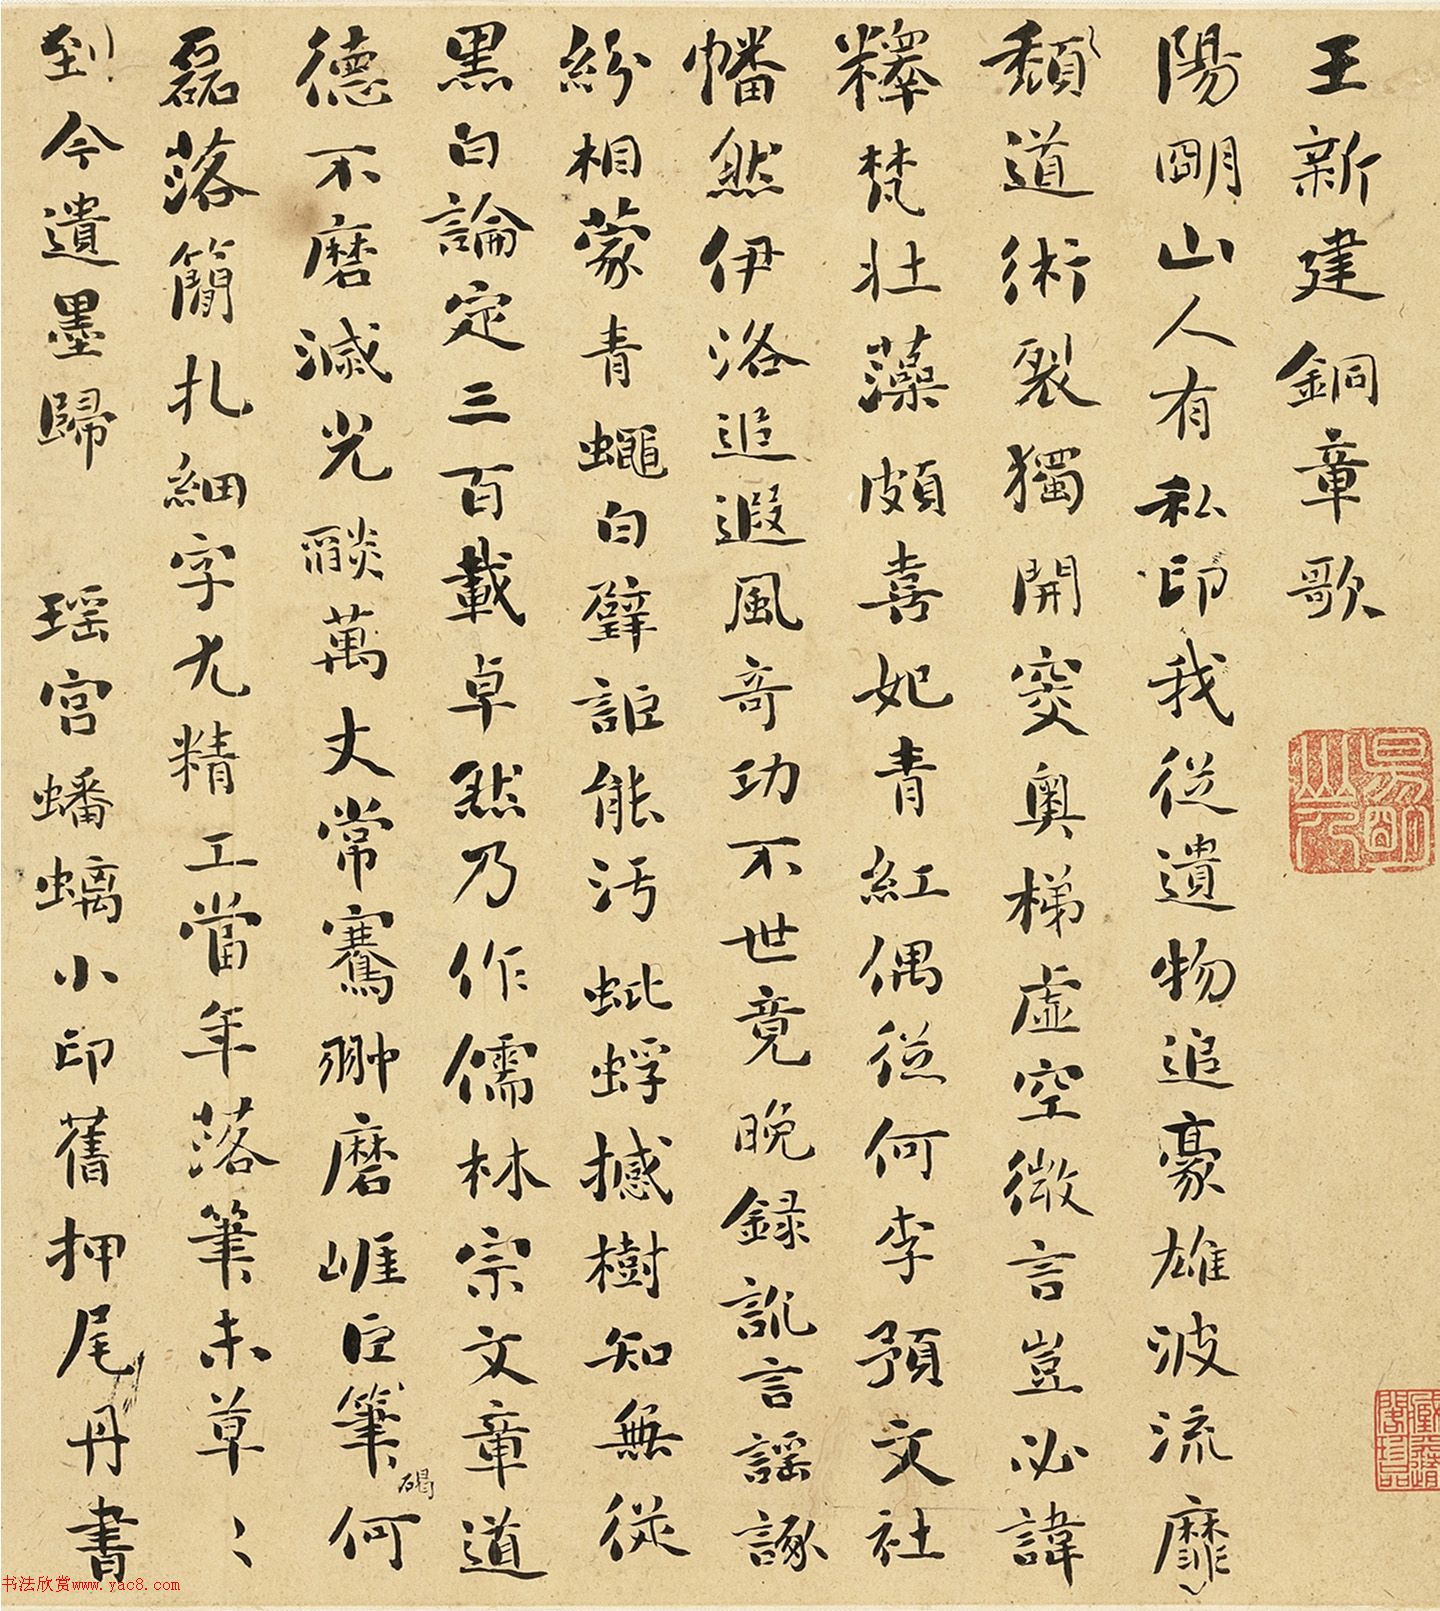 王新建銅章歌
陽明山人有私印我從遺物追豪雄波流靡
頹道術裂獨開窔奧梯虛空微言豈必諱
釋梵壯藻頗喜妃青紅偶從何李預文社
幡然伊洛追遐風奇功不世竟晚録訛言謡諑
紛相蒙青蠅白璧詎能汚蚍蜉撼樹知無從
黑白論定三百載卓然乃作儒林宗文章道
德不磨滅光燄萬丈常騫翀磨崕巨筆何
碣
磊落簡札細字尤精工當年落筆未草〻
到今遺墨歸 瑶宫蟠螭小印舊押尾丹書
陽明山人
書法欣赏www.yac8.com